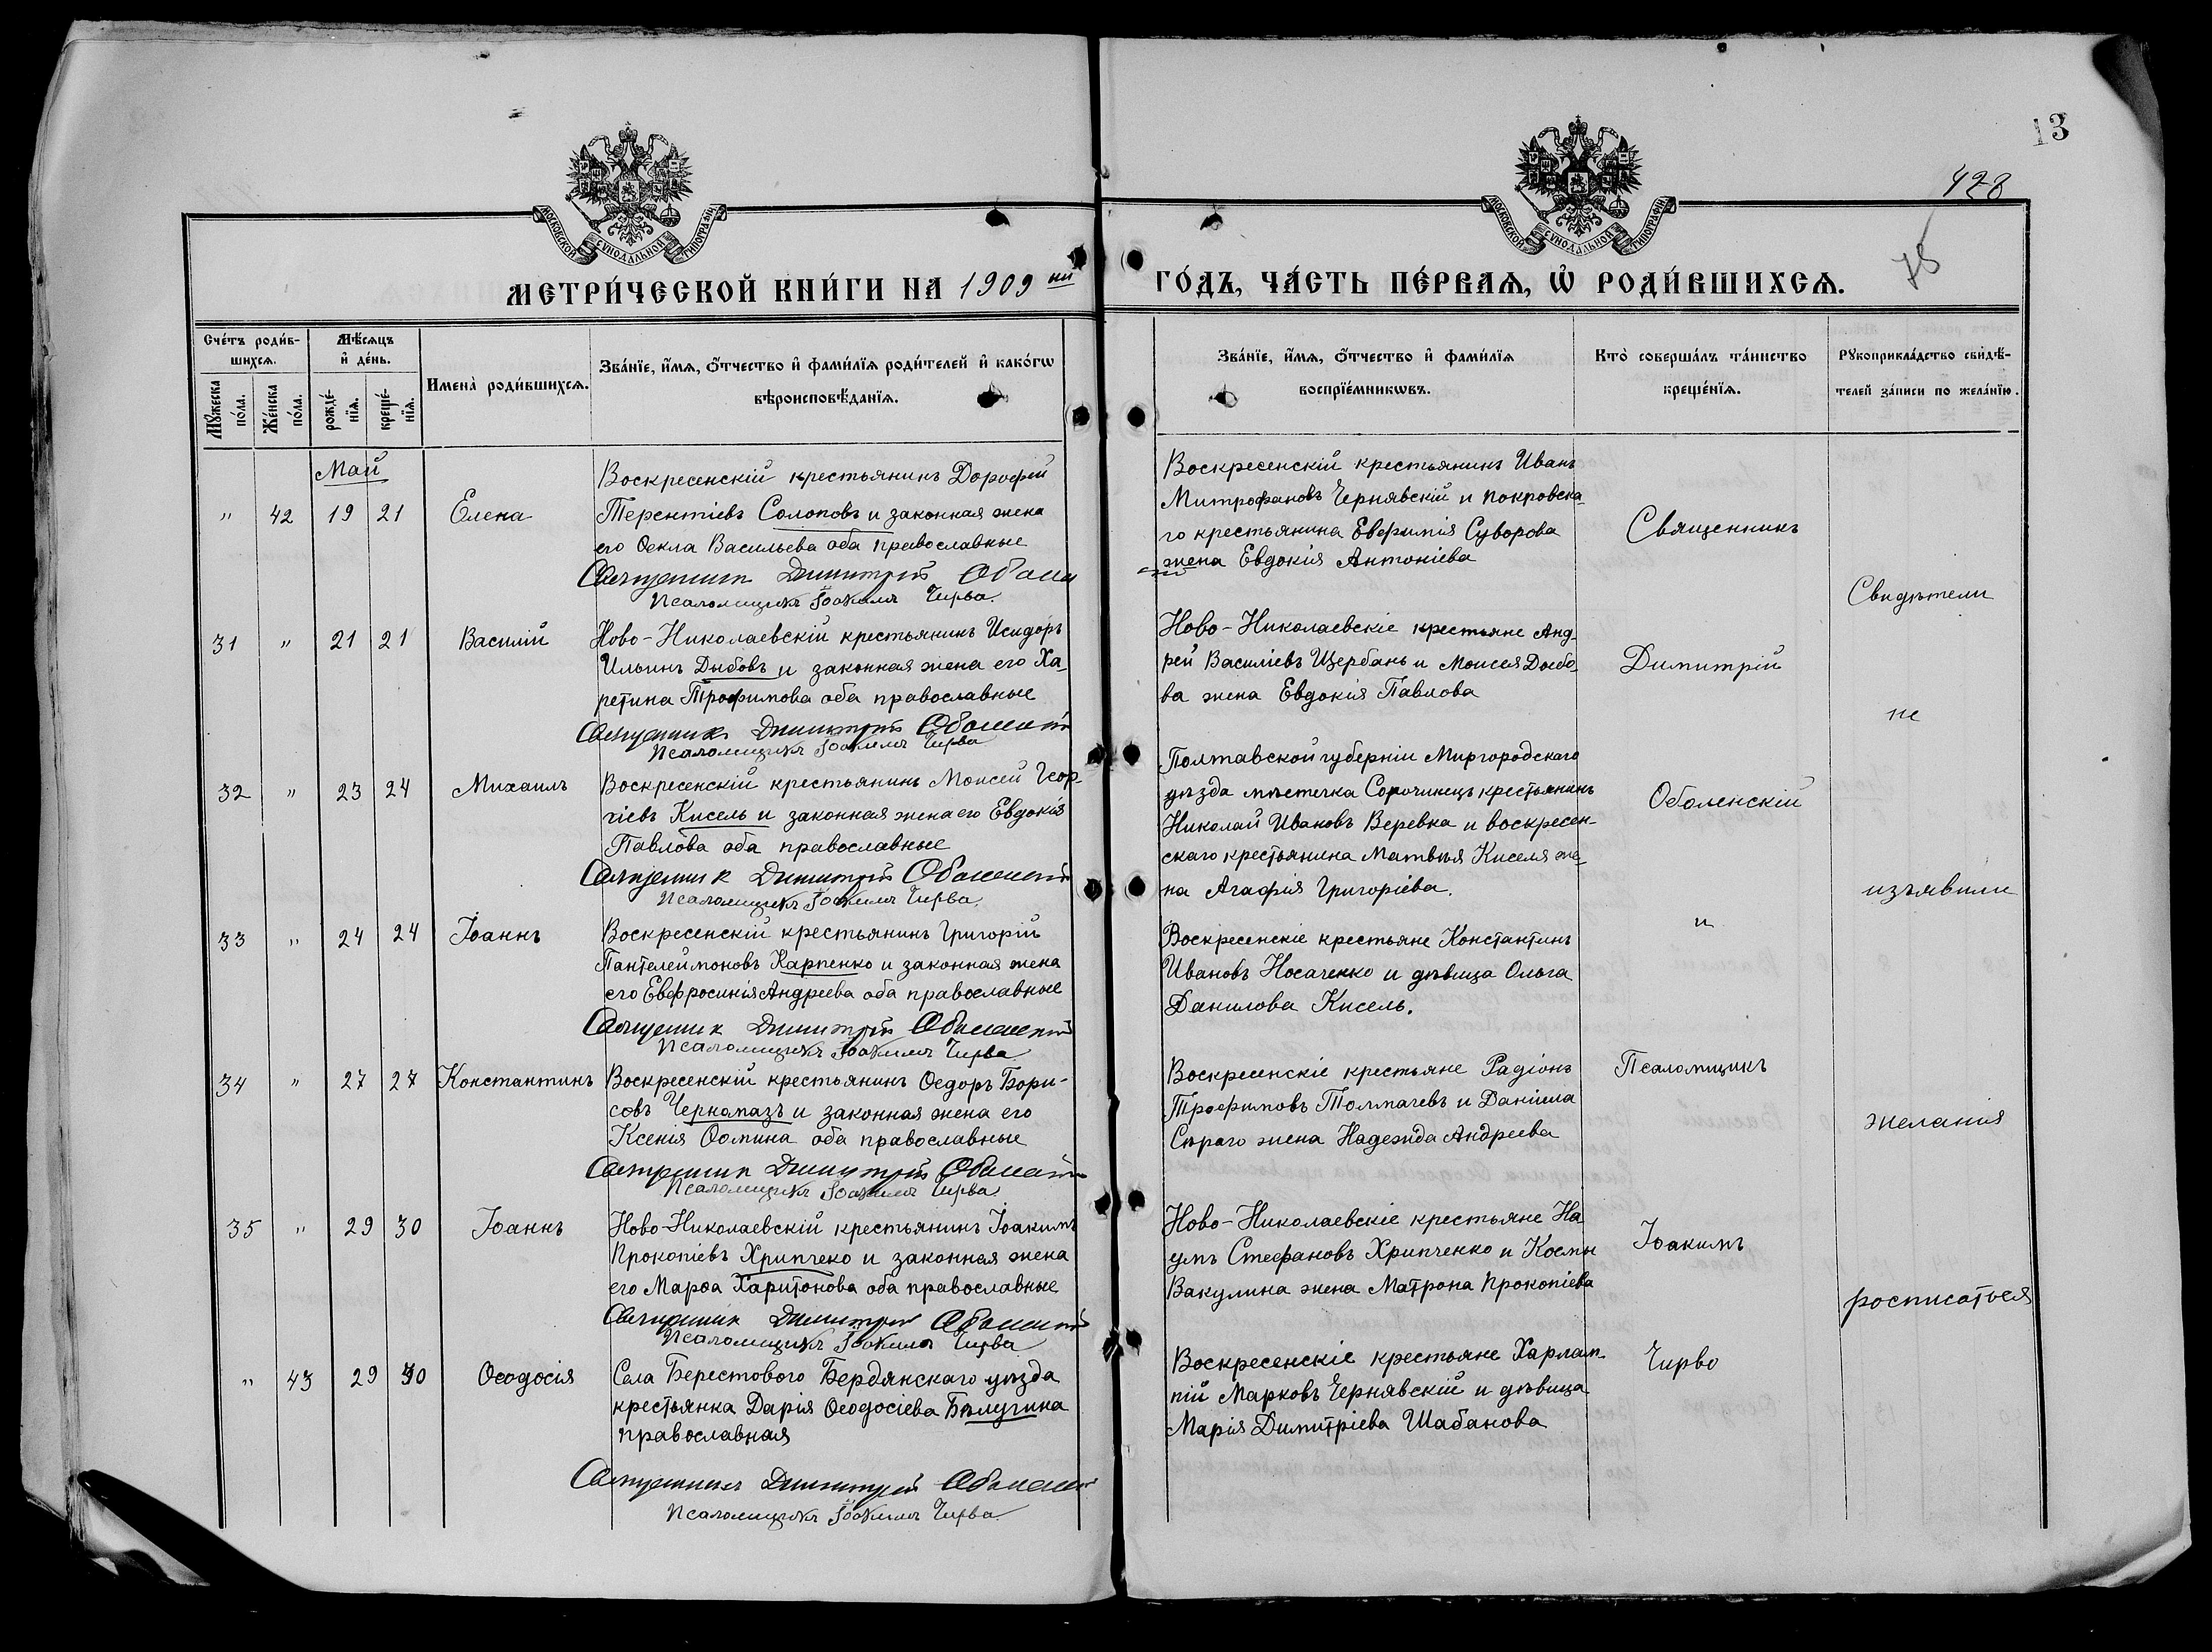 13
428
78
МОСКОВСКОЙ СѴНОДАЛЬНОЙ ТИПОГРАФІИ
МОСКОВСКОЙ СѴНОДАЛЬНОЙ ТИПОГРАФІИ
МЕТРИ́ЧЕСКОЙ КНИ́ГИ НА 1909 ый
ГО́ДЪ, ЧА́СТЬ ПЕ́РВАѦ, Ѡ҆ РОДИ́ВШИХСѦ.
Сче́тъ роди́в-
шихсѧ.
Мꙋ́жеска по́ла.
Же́нска по́ла.
Мѣ́сѧцъ
и҆ де́нь.
рожде́-
нїѧ.
креще́-
нїѧ.
Имена̀ роди́вшихсѧ.
Зва́нїе, и҆́мѧ, ѻ҆́тчество и҆ фами́лїѧ роди́телей и҆ како́гѡ
вѣроисповѣ́данїѧ.
Зва́нїе, и҆́мѧ, ѻ҆́тчество и҆ фами́лїѧ
воспрїе́мникѡвъ.
Кто̀ соверша́лъ та́инство
креще́нїѧ.
Рꙋкоприкла́дство свидѣ́-
телей за́писи по жела́нїю.
Май
" 42 19 21 Елена
Воскресенскій крестьянинъ Дорофей
Терентіевъ Солоповъ и законная жена
его Ѳекла Васильева оба православные
Священникъ Димитрій
Псаломщикъ Іоакимъ Чирва.
Воскресенскій крестьянинъ Иванъ
Митрофановъ Чернявскій и покровска-
го крестьянина Евфимія Суворова
жена Евдокія Антоніева
31 " 21 21 Василій
Ново-Николаевскій крестьянинъ Исидоръ
Ильинъ Дыбовъ и законная жена его Ха-
ретина Трофимова оба православные
Священникъ Димитрій Оболенскій
Псаломщикъ Іоакимъ Чирва
Ново-Николаевскіе крестьяне Анд-
рей Василіевъ Щербань и Моисея Дыбо-
ва жена Евдокія Павлова
32 " 23 24 Михаилъ
Воскресенскій крестьянинъ Моисей Геор-
гіевъ Кисель и законная жена его Евдокія
Павлова оба православные
Священникъ Димитрій Оболенскій
Псаломщикъ Іоакимъ Чирва.
Полтавской губерніи Миргородскаго
уѣзда мѣстечка Сорочинецъ крестьянинъ
Николай Ивановъ Веревка и воскресен-
скаго крестьянина Матвѣя Киселя же-
на Агафія Григоріева.
33 " 24 24 Іоаннъ
Воскресенскій крестьянинъ Григорій
Пантелеймоновъ Карпенко и законная жена
его Евфросинія Андреева оба православные
Священникъ Димитрій Оболенскій
Псаломщикъ Іоакимъ Чирва
Воскресенскіе крестьяне Константинъ
Ивановъ Носаченко и дѣвица Ольга
Данилова Кисель.
34 " 27 27 Константинъ
Воскресенскій крестьянинъ Ѳедоръ Бори-
совъ Черномазъ и законная жена его
Ксенія Ѳомина оба православные
Священникъ Димитрій Оболенскій
Псаломщикъ Іоакимъ Чирва
Воскресенскіе крестьяне Радіонъ
Трофимовъ Толмачевъ и Даніила
Сѣраго жена Надежда Андреева
35 " 29 30 Іоаннъ
Ново-Николаевскій крестьянинъ Іоакимъ
Прокопіевъ Хрипчеко и законная жена
его Марѳа Харитонова оба православные
Священникъ Димитрій Оболенскій
Псаломщикъ Іоакимъ Чирва
Ново-Николаевскіе крестьяне На-
умъ Стефановъ Хрипченко и Космы
Вакулина жена Матрона Прокопіева
" 43 29 30 Ѳеодосія
Села Берестового Бердянскаго уѣзда
крестьянка Дарія Ѳеодосіева Бѣлугина
православная
Священникъ Димитрій Оболенскій
Псаломщикъ Іоакимъ Чирва.
Воскресенскіе крестьяне Харлам-
пій Марковъ Чернявскій и дѣвица
Марія Димитріева Шабанова
Священникъ
Димитрій
Оболенскій
и
Псаломщикъ
Іоакимъ
Чирво
Свидѣтели
не
изъявили
желанія
росписаться